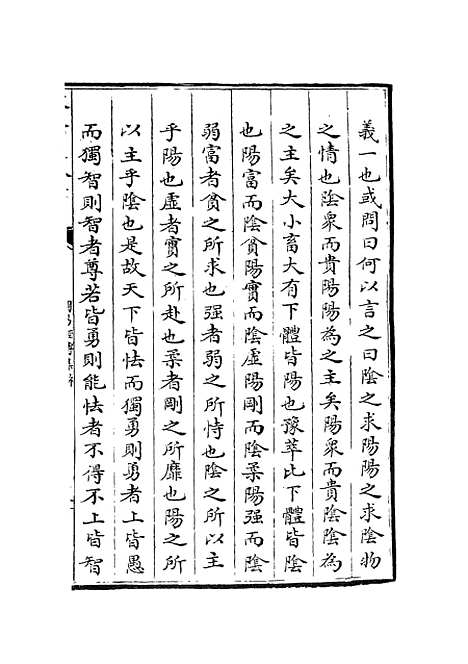 義一也或問曰何以言之曰陰之求陽陽之求陰物
之情也陰衆而貴陽陽為之主矣陽衆而貴陰陰為
之主矣大小畜大有下體皆陽也豫萃比下體皆陰
也陽富而陰貧陽實而陰虛陽剛而陰柔陽强而陰
弱富者貧之所求也强者弱之所恃也陰之所以主
乎陽也虛者實之所赴也柔者剛之所靡也陽之所
以主乎陰也是故天下皆怯而獨勇則勇者上皆愚
而獨智則智者尊若皆勇則能怯者不得不上皆智